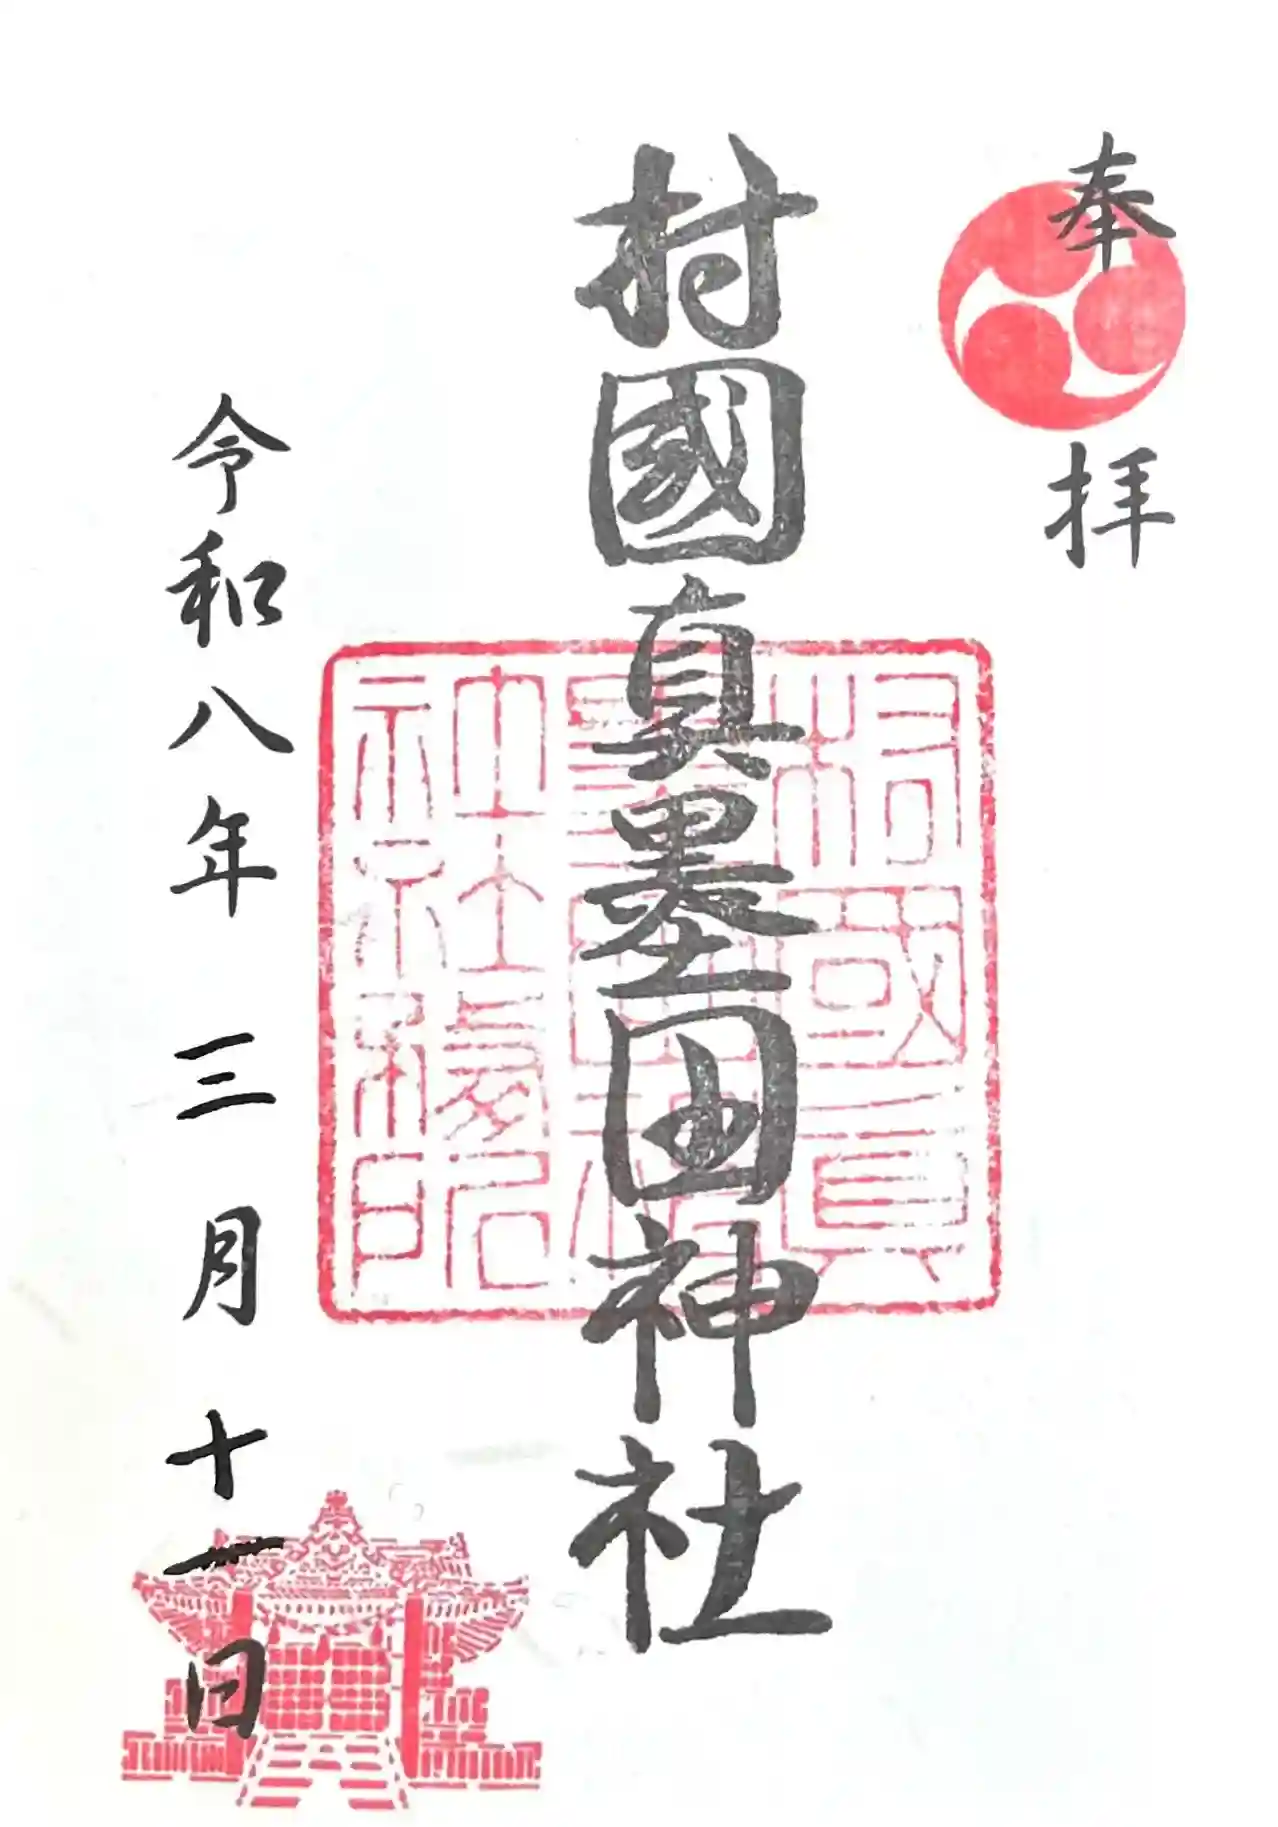 奉拝
村國真墨田神社
村國真墨田神社社務所
令和八年三月十一日